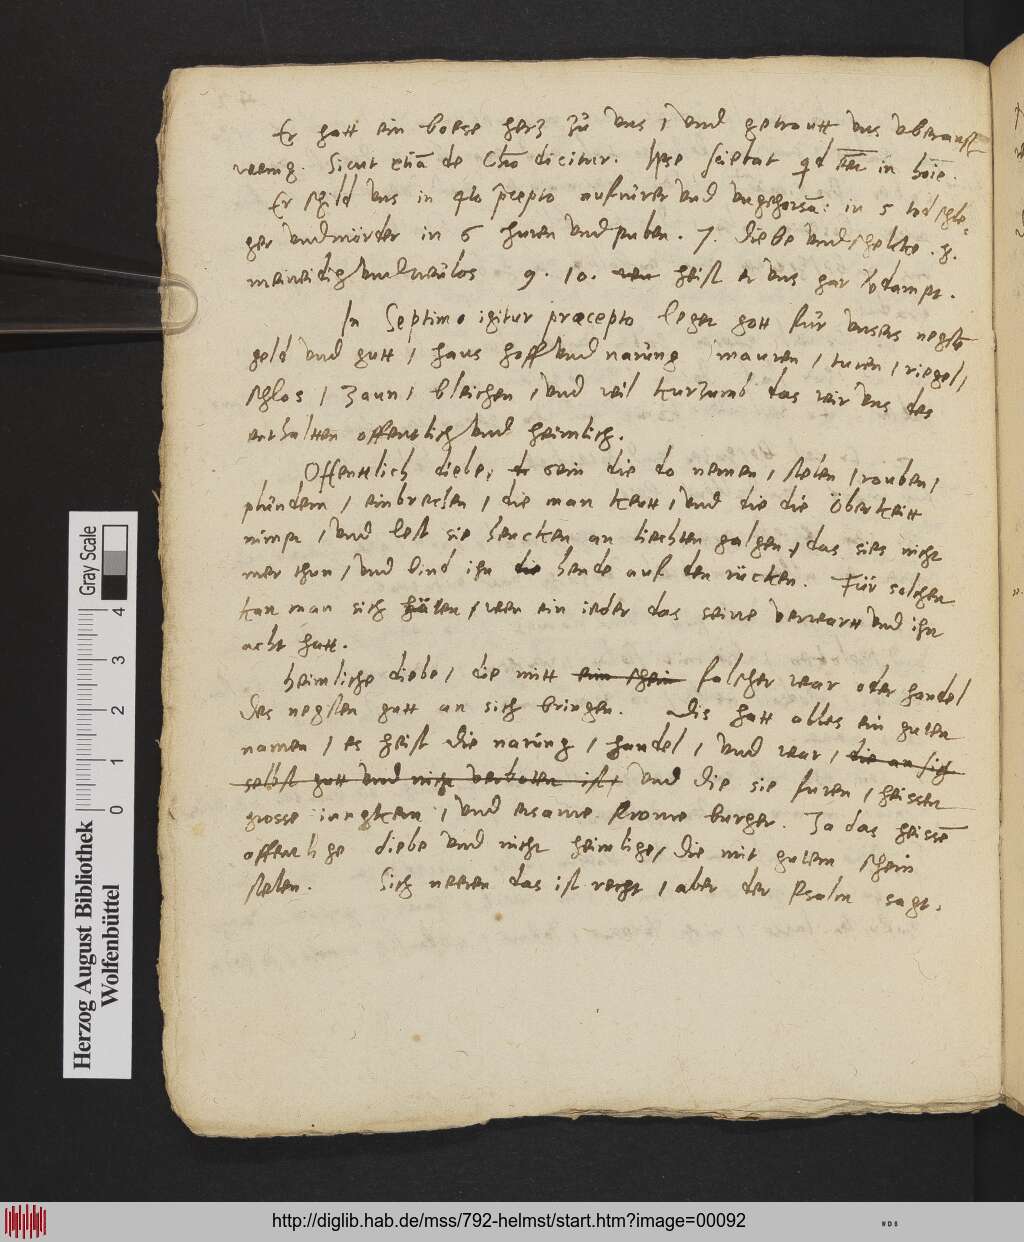 Er hatt ein boese hertz zu uns / und getrautt uns uberausz
wenig. Sicut etiā de Chro dicitur. Ipse sciebat qd eēt in hoīe.
Er schild uns in 4to p̄cepto aufrürer und ungehorsā: in 5 todschle=
ger und mörder in 6 huren und puben. 7. diebe und schelcke. 8.
meineidig und treulos 9. 10. heist er uns gar vdampt.
In Septimo igitur præcepto leget gott für unsers negsten
geld und gutt / haus hoff und narung mauren / turen / riegel /
schlos / zaun / bleichen / und wil kurzumb das wir uns des
enthalten offentlich und heimlich.
Offentlich diebe, sein die do nemen / stelen / rauben /
plundern / einbrechen / die man kent / und die die öberkeitt
nimpt / und lest sie hencken an liechten galgen / das sies nicht
mer thun / und bind ihn die hende auf den rücken. Für solchen
kan man sich hüten / wen ein ieder das seine verwartt und ihn
acht hatt.
Heimliche diebe / die mitt ein schein falscher war oder handel
des negsten gutt an sich bringen. Dis hatt alles ein guten
namen / es heist die narung / handel / und war / die an sich
selbst gutt und nicht verboten ist / und die sie furen / heissen
grosse iungkern / und ersame frome burger Ja das heissē
offentlige diebe und nicht heimlige / die mit gutem schein
stelen. Sich neeren das ist recht / aber der Psalm sagt.
Herzog August Bibliothek
Wolfenbüttel
Gray Scale
0 1 2 3 4
http://diglib.hab.de/mss/792-helmst/start.htm?image=00092